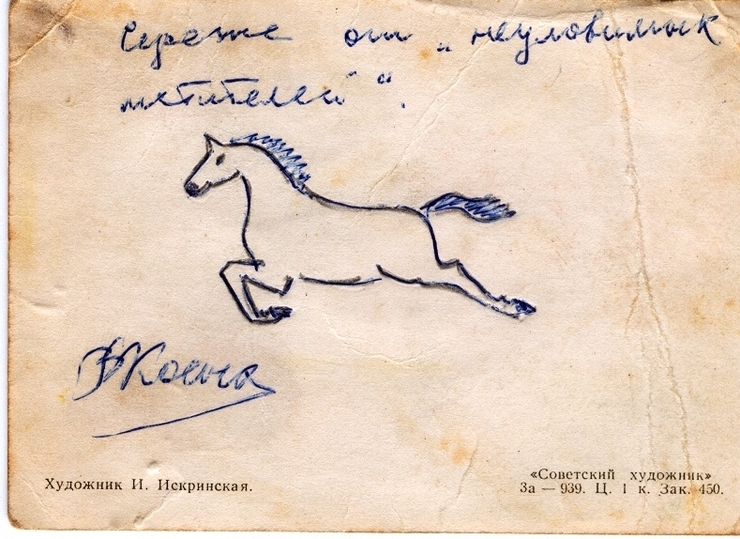 Сереже от „неуловимых
мстителей“.
ВКосых
Художник И. Искринская.
«Советский художник»
За — 939. Ц. 1 к. Зак. 450.